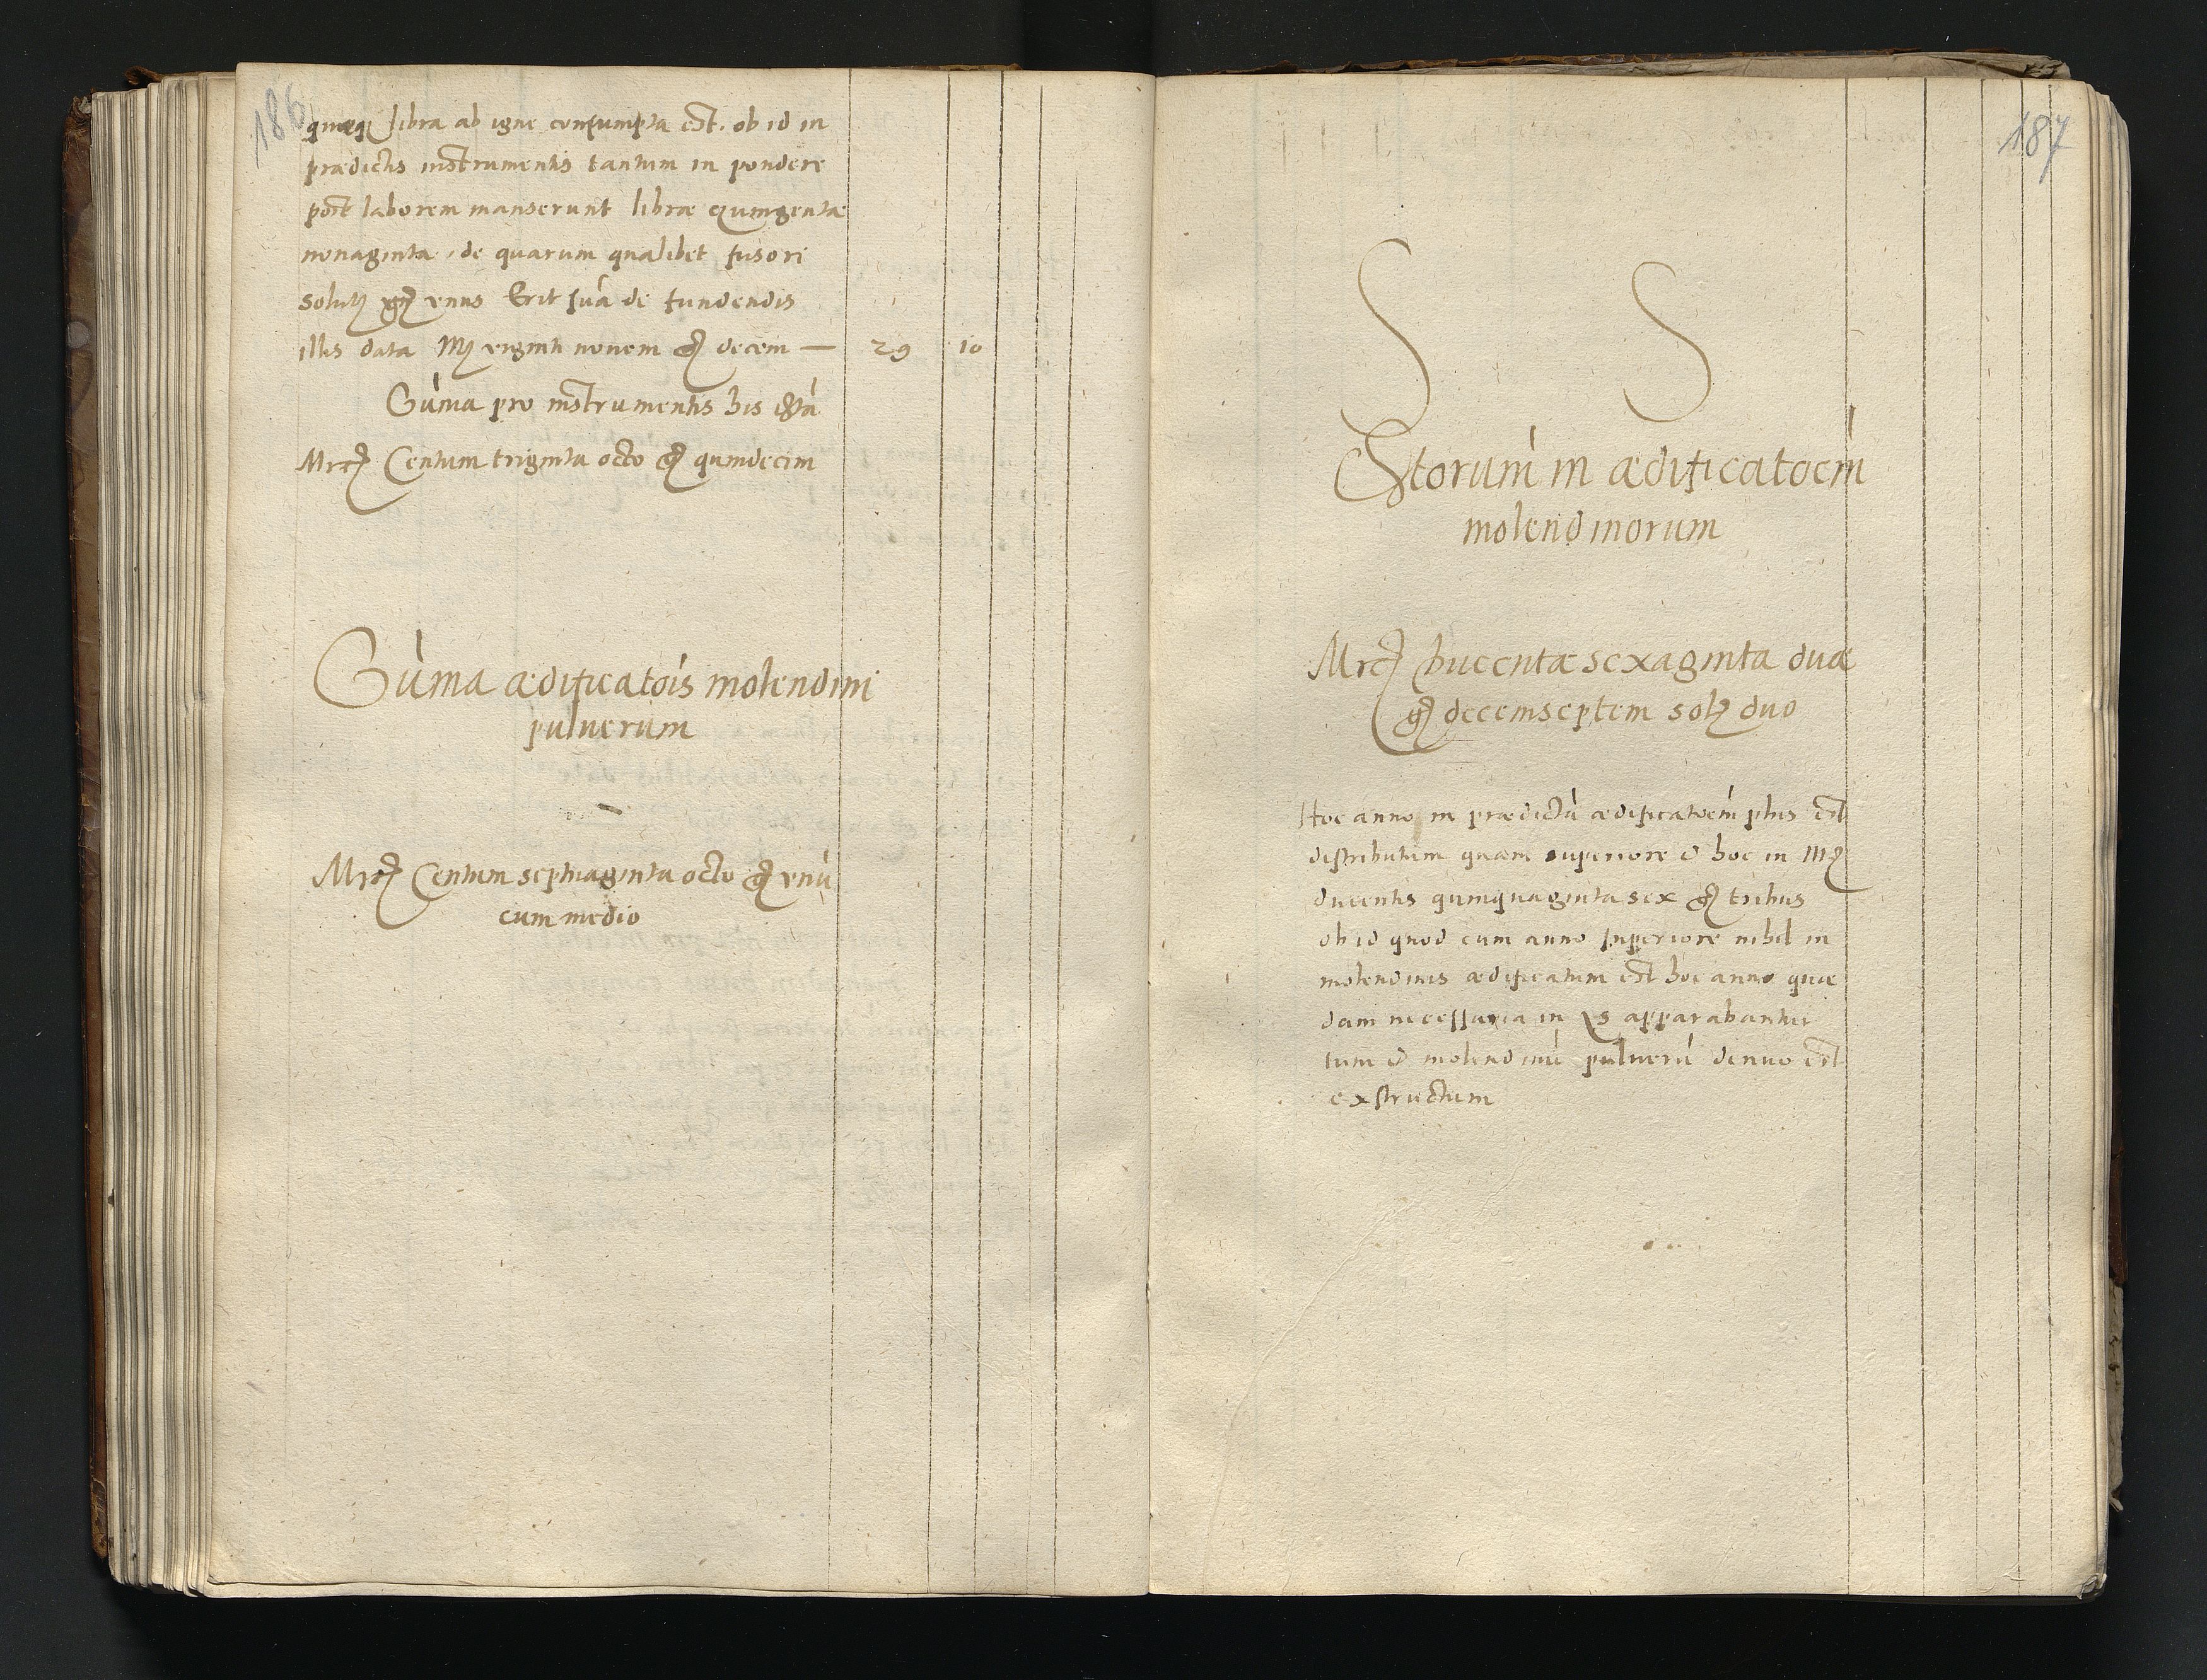 186
quaeq libra ab igne consumpta est. ob id in
praedictis instrumentis tantum in pondere
post laborem manserunt librae quingentae
nonaginta, de quarum qualibet fusori
solut gr vnus Erit sua de fundendis
illis data Mr viginti novem gr decem — 29 10
Suma pro instrumentis his
Mrc Centum triginta octo gr quindecim
Suma aedificatois molendini
puluerum
Mrc Centum septuaginta octo gr vnu
cum medio
187
S S
Storum in aedificatoem
molendinorum
Mrc Ducentae sexaginta duae
gr decemseptem sol duo
Hoc anno in praedictu aedificatoem plus est
distributum quam superiore & hoc in Mr
ducentis quinquaginta sex gr tribus
ob id quod cum anno superiore nihil in
molendinis aedificatum est hoc anno quae
dam necessaria in ys apparabantur
tum & molendinu pulueru denuo est
exstructum